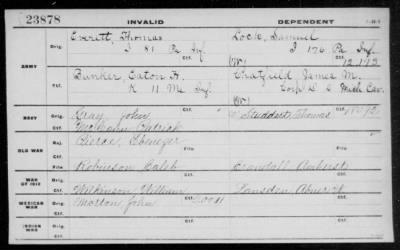 23878 INVALID DEPENDENT
Everett, Thomas Lock, Samuel
Orig. I 81 Pa Inf. I 176 Pa Inf
ARMY Ctf. (W) 12 172
Bunker, Eaton H. Chatfield James M.
Orig. K 11 Me Inf. Corp D 6 Mich Cav.
Ctf. (W)
NAVY Orig. Gray, John Studdert, Thomas
Ctf. McGahn Patrick
OLD WAR File Pierce, Ebenezer File
Ctf. Robinson Caleb Crandall Amherst
WAR OF 1812 Orig.
Ctf. Wilkinson, William Lansden Abner W
MEXICAN WAR Orig. Morton John
Ctf.
INDIAN WAR Orig.
Ctf.